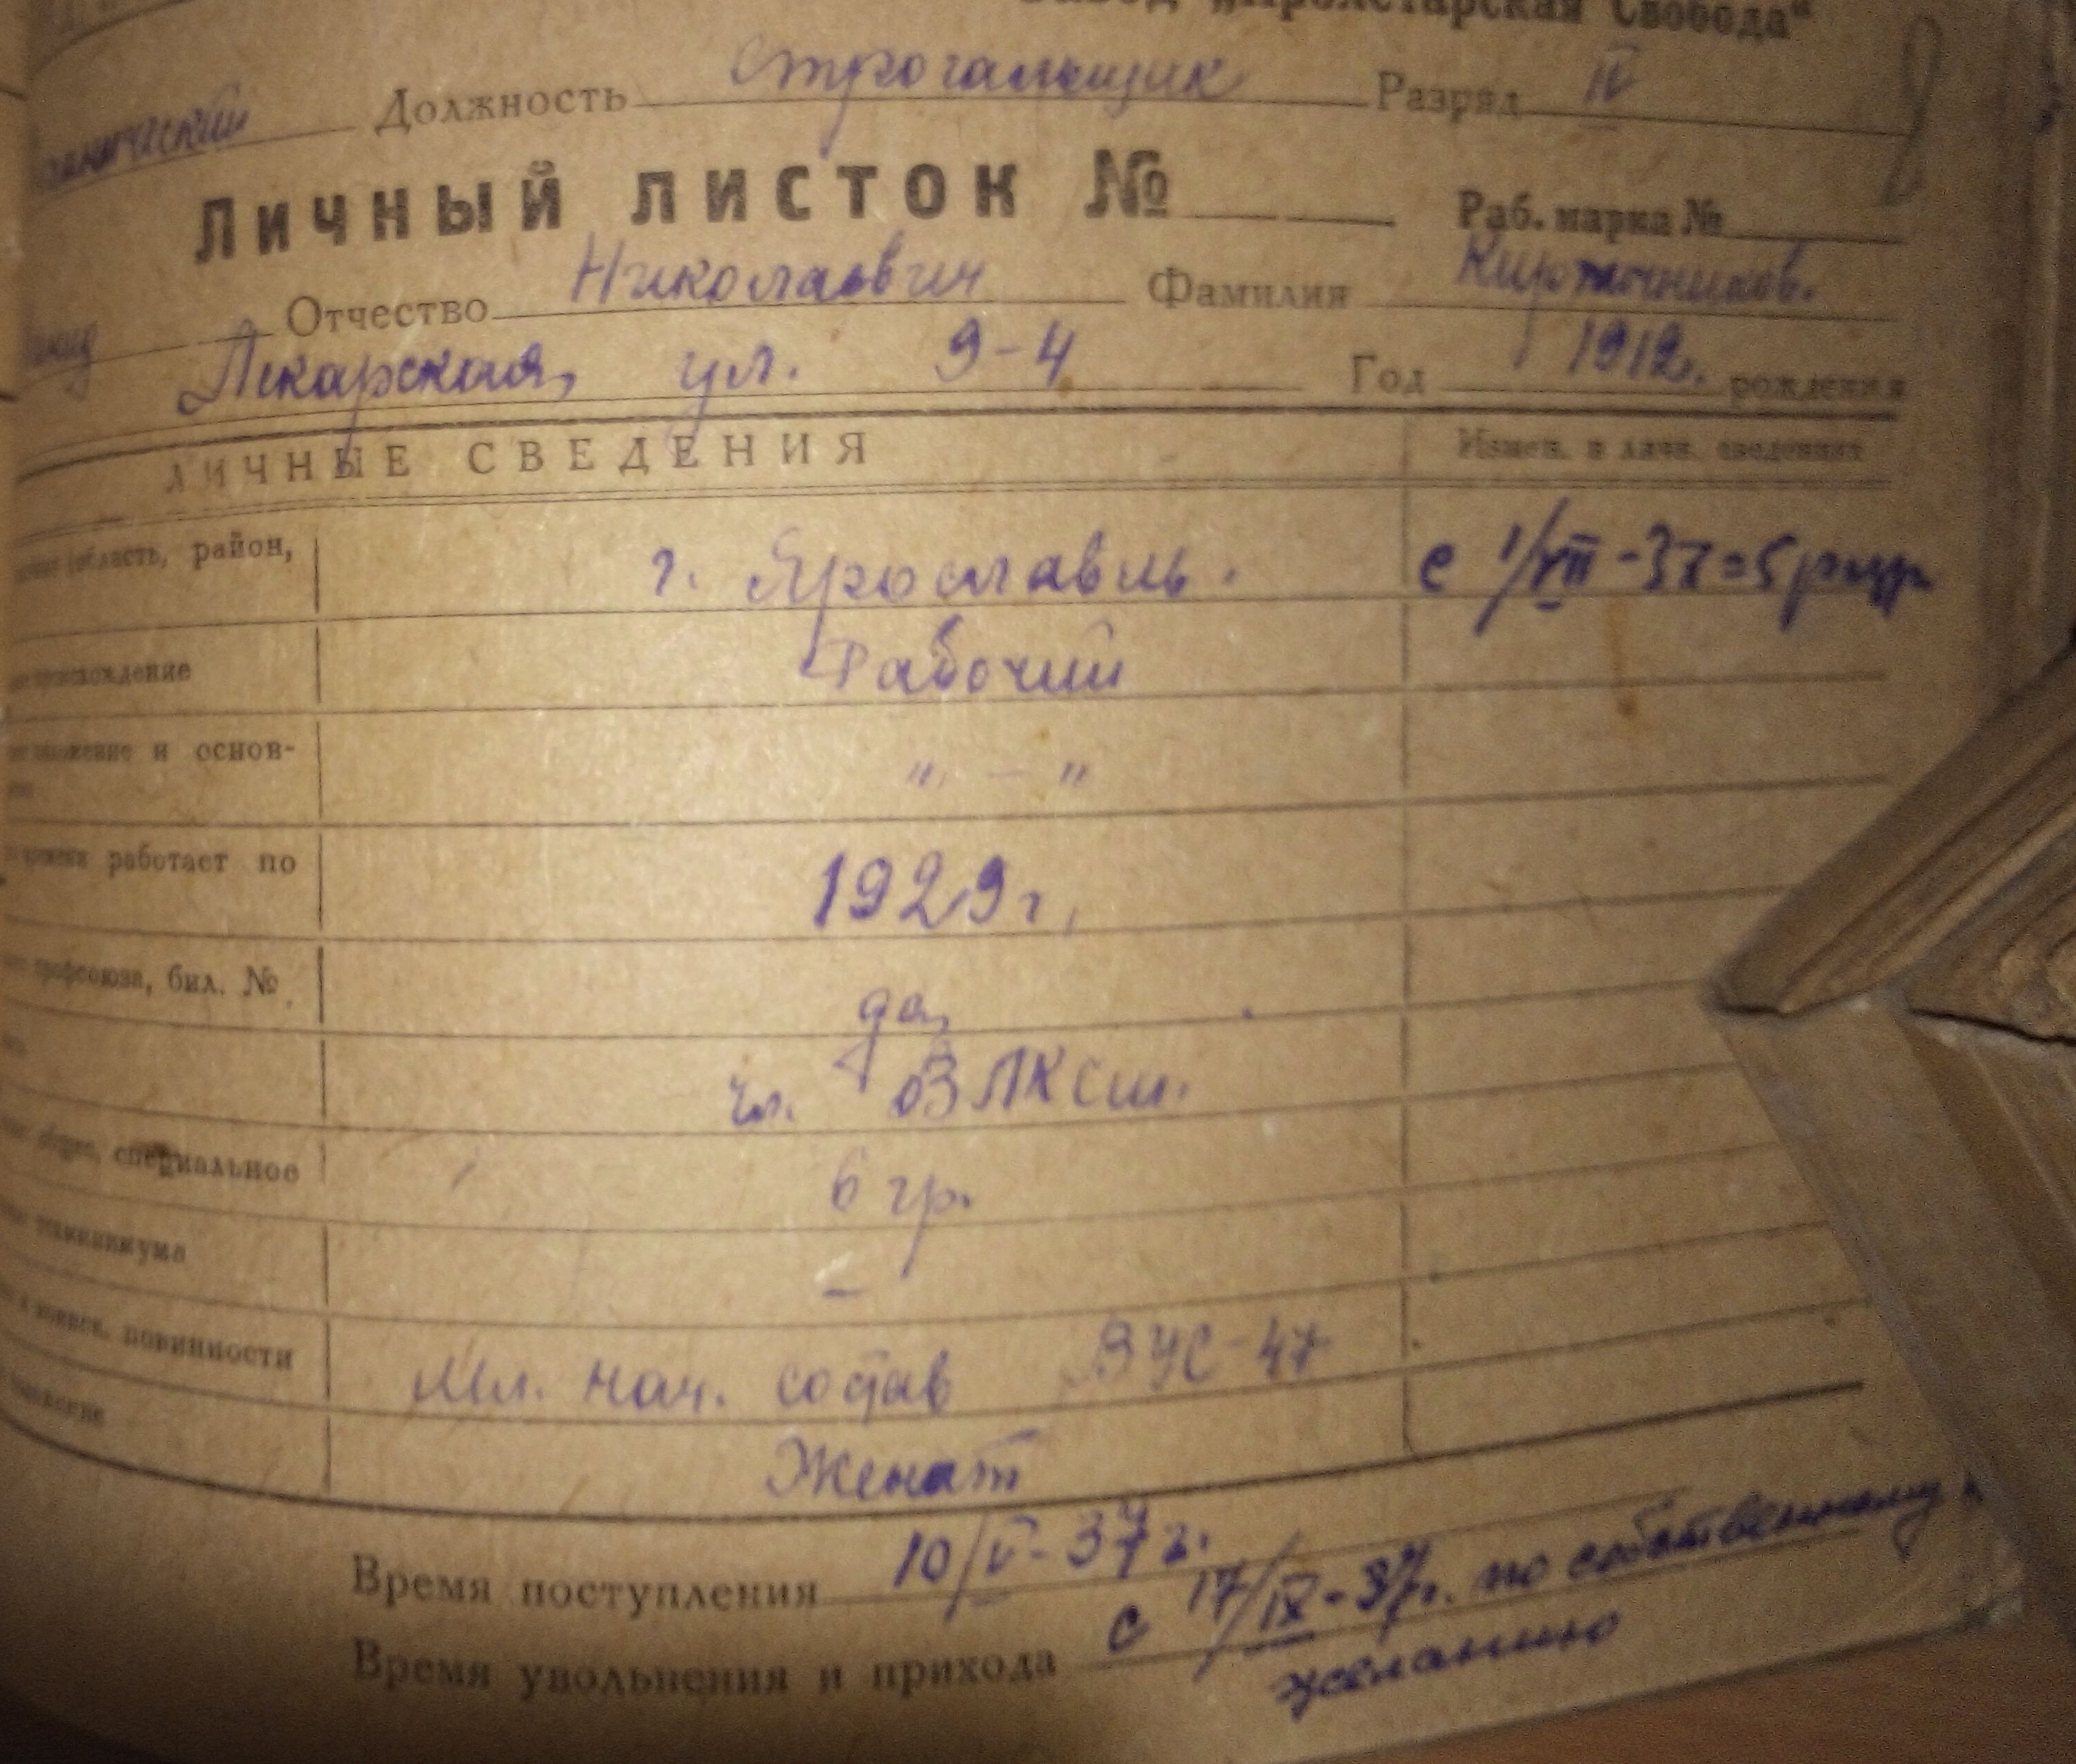 Завод „Пролетарская Свобода“
Должность строгальщик Разряд IV
Личный листок № Раб. марка №
Отчество Николаевич Фамилия
Лекарская ул. 9-4 Год 1912г. рождения
ЛИЧНЫЕ СВЕДЕНИЯ Измен. в личн. сведениях
область, район, г. Ярославль. с 1/VII-37=5 разр
происхождение Рабочий
и основ- „ — „
работает по 1929 г.
профсоюза, бил. № да,
чл. ВЛКСМ.
специальное 6 гр.
минимума —
повинности Мл. нач. состав ВУС-47
Женат
Время поступления 10/V-37 г.
Время увольнения и прихода с 17/IX-37г. по собственному
желанию